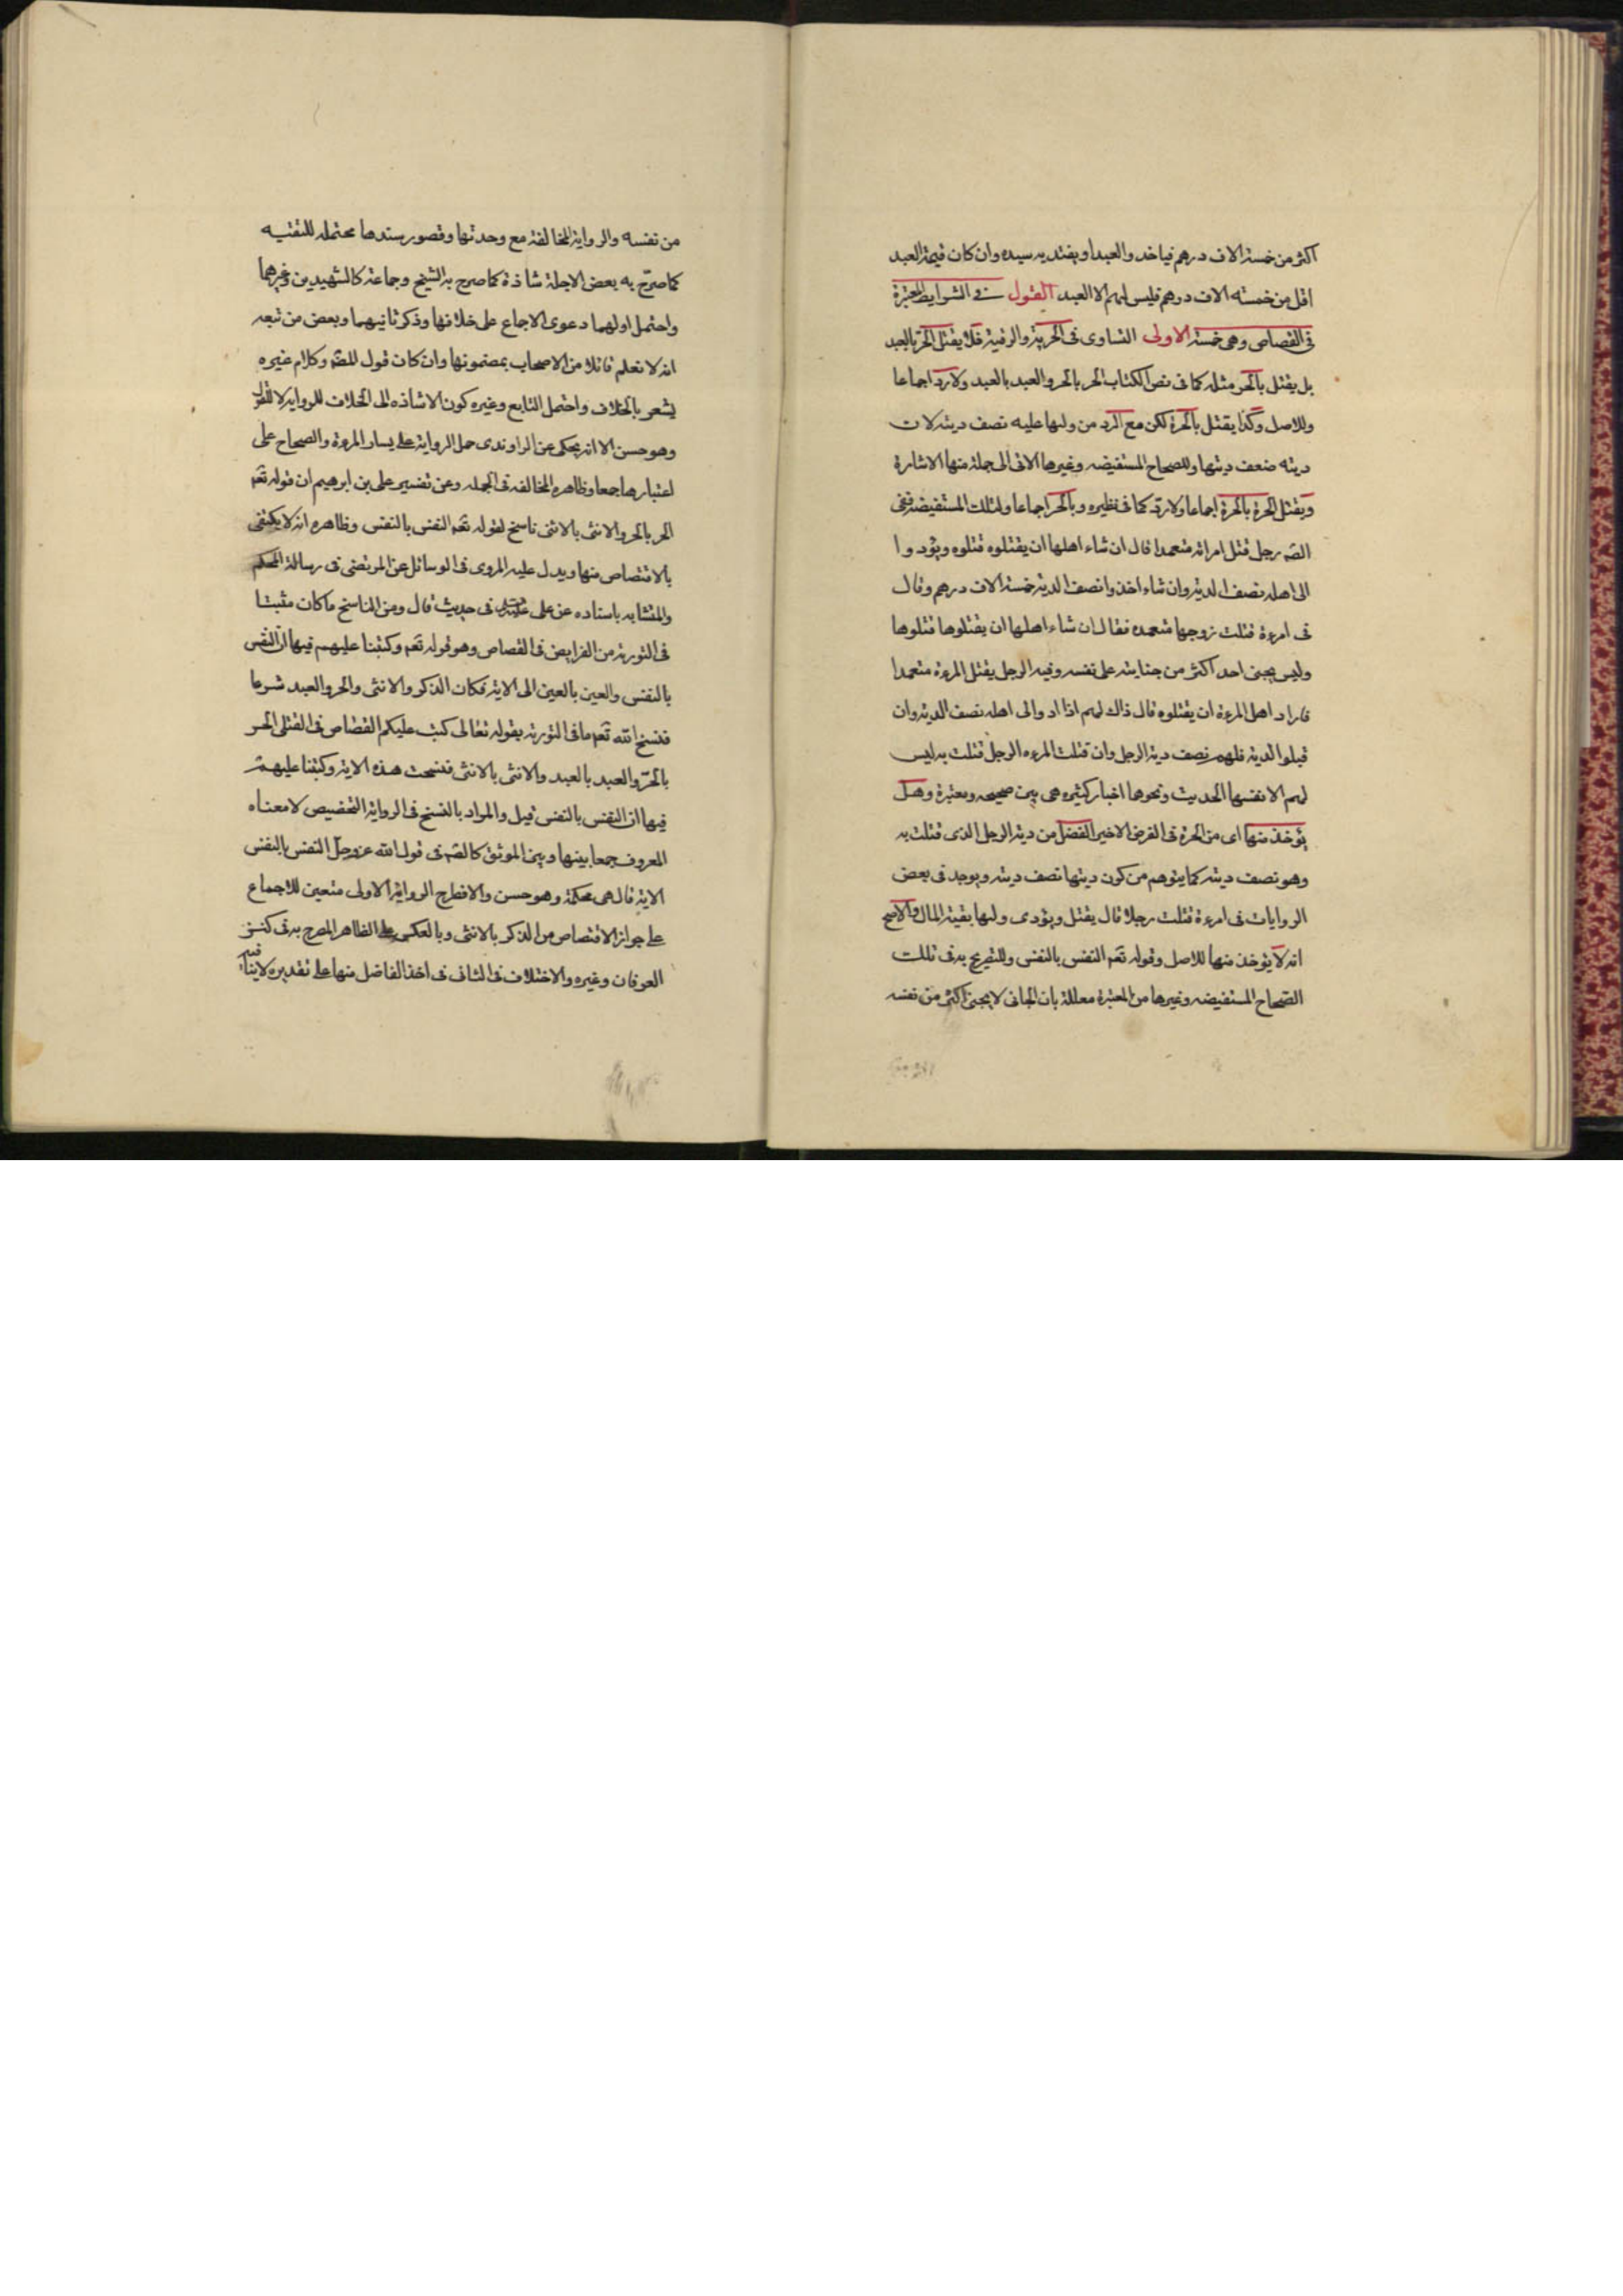 اكثر من خمسة الاف درهم فياخذوا العبد او يفتديه سيده وان كان قيمة العبد
اقل من خمسه الاف درهم فليس لهم الا العبد القول في الشرايط المعتبرة
فى القصاص وهى خمسة الاولى التساوى فى الحرية والرقية فلا يقتل الحر بالعبد
بل يقتل بالحر مثله كما فى نص الكتاب الحر بالحر والعبد بالعبد ولا رد اجماعا
وللاصل وكذا يقتل بالحرة لكن مع الرد من وليها عليه نصف ديته لان
ديته ضعف ديتها وللصحاح المستفيضه وغيرها الاتى الى جملة منها الاشارة
ويقتل الحرة بالحرة اجماعا ولا رد كما فى نظيره وبالحر اجماعا ولتلك المستفيضه ففى
الصه رجل قتل امراته متعمدا قال ان شاء اهلها ان يقتلوه قتلوه ويؤدوا
الى اهله نصف الدية وان شاء اخذوا نصف الدية خمسة الاف درهم وقال
فى امرءة قتلت زوجها متعمده فقال ان شاء اهلها ان يقتلوها قتلوها
وليس يجنى احد اكثر من جنايته على نفسه وفيه الرجل يقتل المرءة متعمدا
فاراد اهل المرءة ان يقتلوه قال ذاك لهم اذا ادوا الى اهله نصف الدية وان
قبلوا الدية فلهم نصف دية الرجل وان قتلت المرءه الرجل قتلت به ليس
لهم الا نفسها الحديث ونحوها اخبار كثيره هى بين صحيحه ومعتبرة وهل
يؤخذ منها اى من الحرة فى الفرض الاخير الفضل من دية الرجل الذى قتلت به
وهو نصف ديته كما يتوهم من كون ديتها نصف ديته ويوجد فى بعض
الروايات فى امرءة قتلت رجلا قال يقتل ويؤدى وليها بقية المال والاصح
انه لا يؤخذ منها للاصل وقوله تعه النفس بالنفس وللتصريح به فى تلك
الصحاح المستفيضه وغيرها من المعتبرة معللة بان الجانى لا يجنى اكثر من نفسه
من نفسه والرواية المخالفة مع وحدتها وقصور سندها محتمله للتقيه
كما صرّح به بعض الاجلة شاذة كما صرح به الشيخ وجماعة كالشهيدين وغيرهما
واحتمل اولهما دعوى الاجماع على خلافها وذكر ثانيهما وبعض من تبعه
انه لا نعلم قائلا من الاصحاب بمضمونها وان كان قول للصه وكلام غيره
يشعر بالخلاف واحتمل التابع وغيره كون الاشاذه الى الخلاف للروايه لا
وهو حسن الا انه يحكى عن الراوندى حمل الرواية على يسار المرءة والصحاح على
اعتبارها جمعا وظاهره المخالفه فى الجمله وعن تفسير على بن ابرهيم ان قوله تعه
الحر بالحر والانثى بالانثى ناسخ لقوله تعه النفس بالنفس وظاهره انه لا يكتفى
بالاقتصاص منها ويدل عليه المروى فى الوسائل عن المرتضى فى رسالة المحكم
والمتشابه باسناده عن على فى حديث قال ومن الناسخ ما كان مثبتا
فى التورية من الفرايض فى القصاص وهو قوله تعه وكتبنا عليهم فيها ان النفس
بالنفس والعين بالعين الى الاية فكان الذكر والانثى والحر والعبد شرعا
فنسخ الله تعه ما فى التورية بقوله تعالى كتب عليكم القصاص فى القتلى الحر
بالحرّ والعبد بالعبد والانثى بالانثى فنسخت هذه الاية وكتبنا عليهم
فيها ان النفس بالنفس قيل والمراد بالنسخ فى الرواية التخصيص لا معناه
المعروف جمعا بينها وبين الموثق كالصه فى قول الله عزوجل النفس بالنفس
الاية قال هى محكمة وهو حسن والافطرح الرواية الاولى متعين للاجماع
على جواز الاقتصاص من الذكر بالانثى وبالعكس على الظاهر المصرح به فى كنز
العرفان وغيره والاختلاف فى الثانى فى اخذ الفاضل منها على تقديره لا